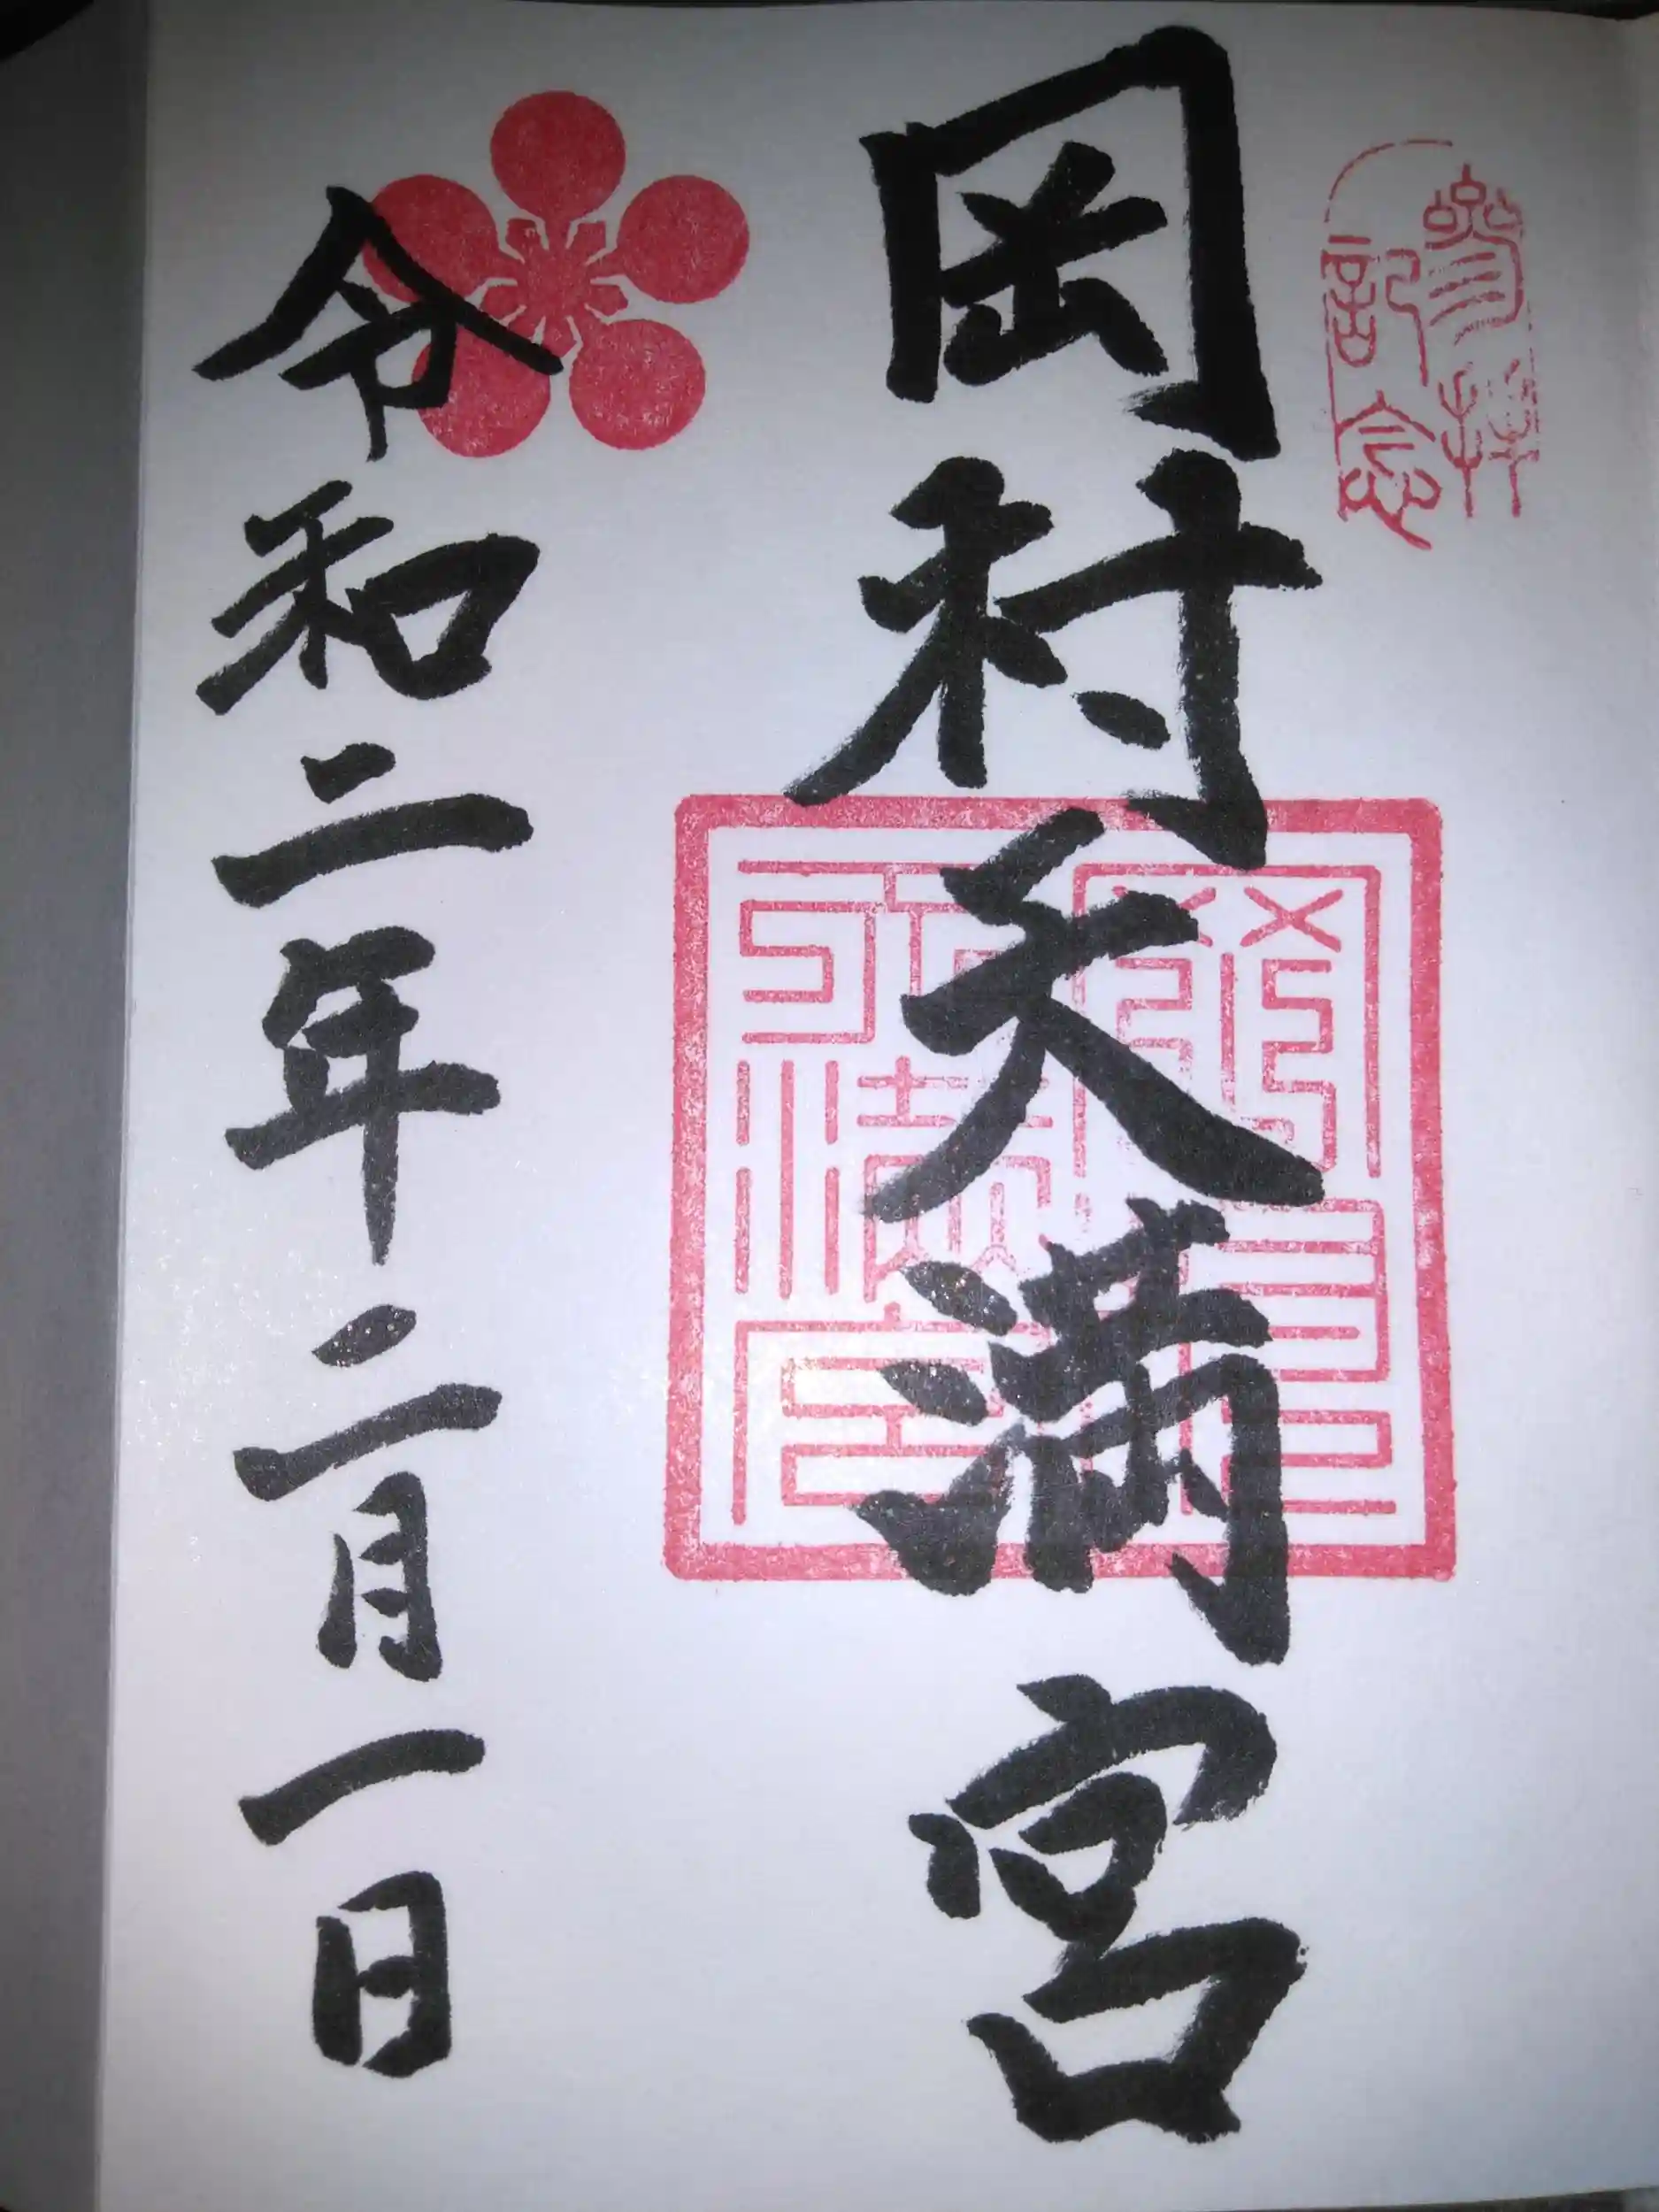 參拝
記念
岡村天満宮
令和二年二月一日